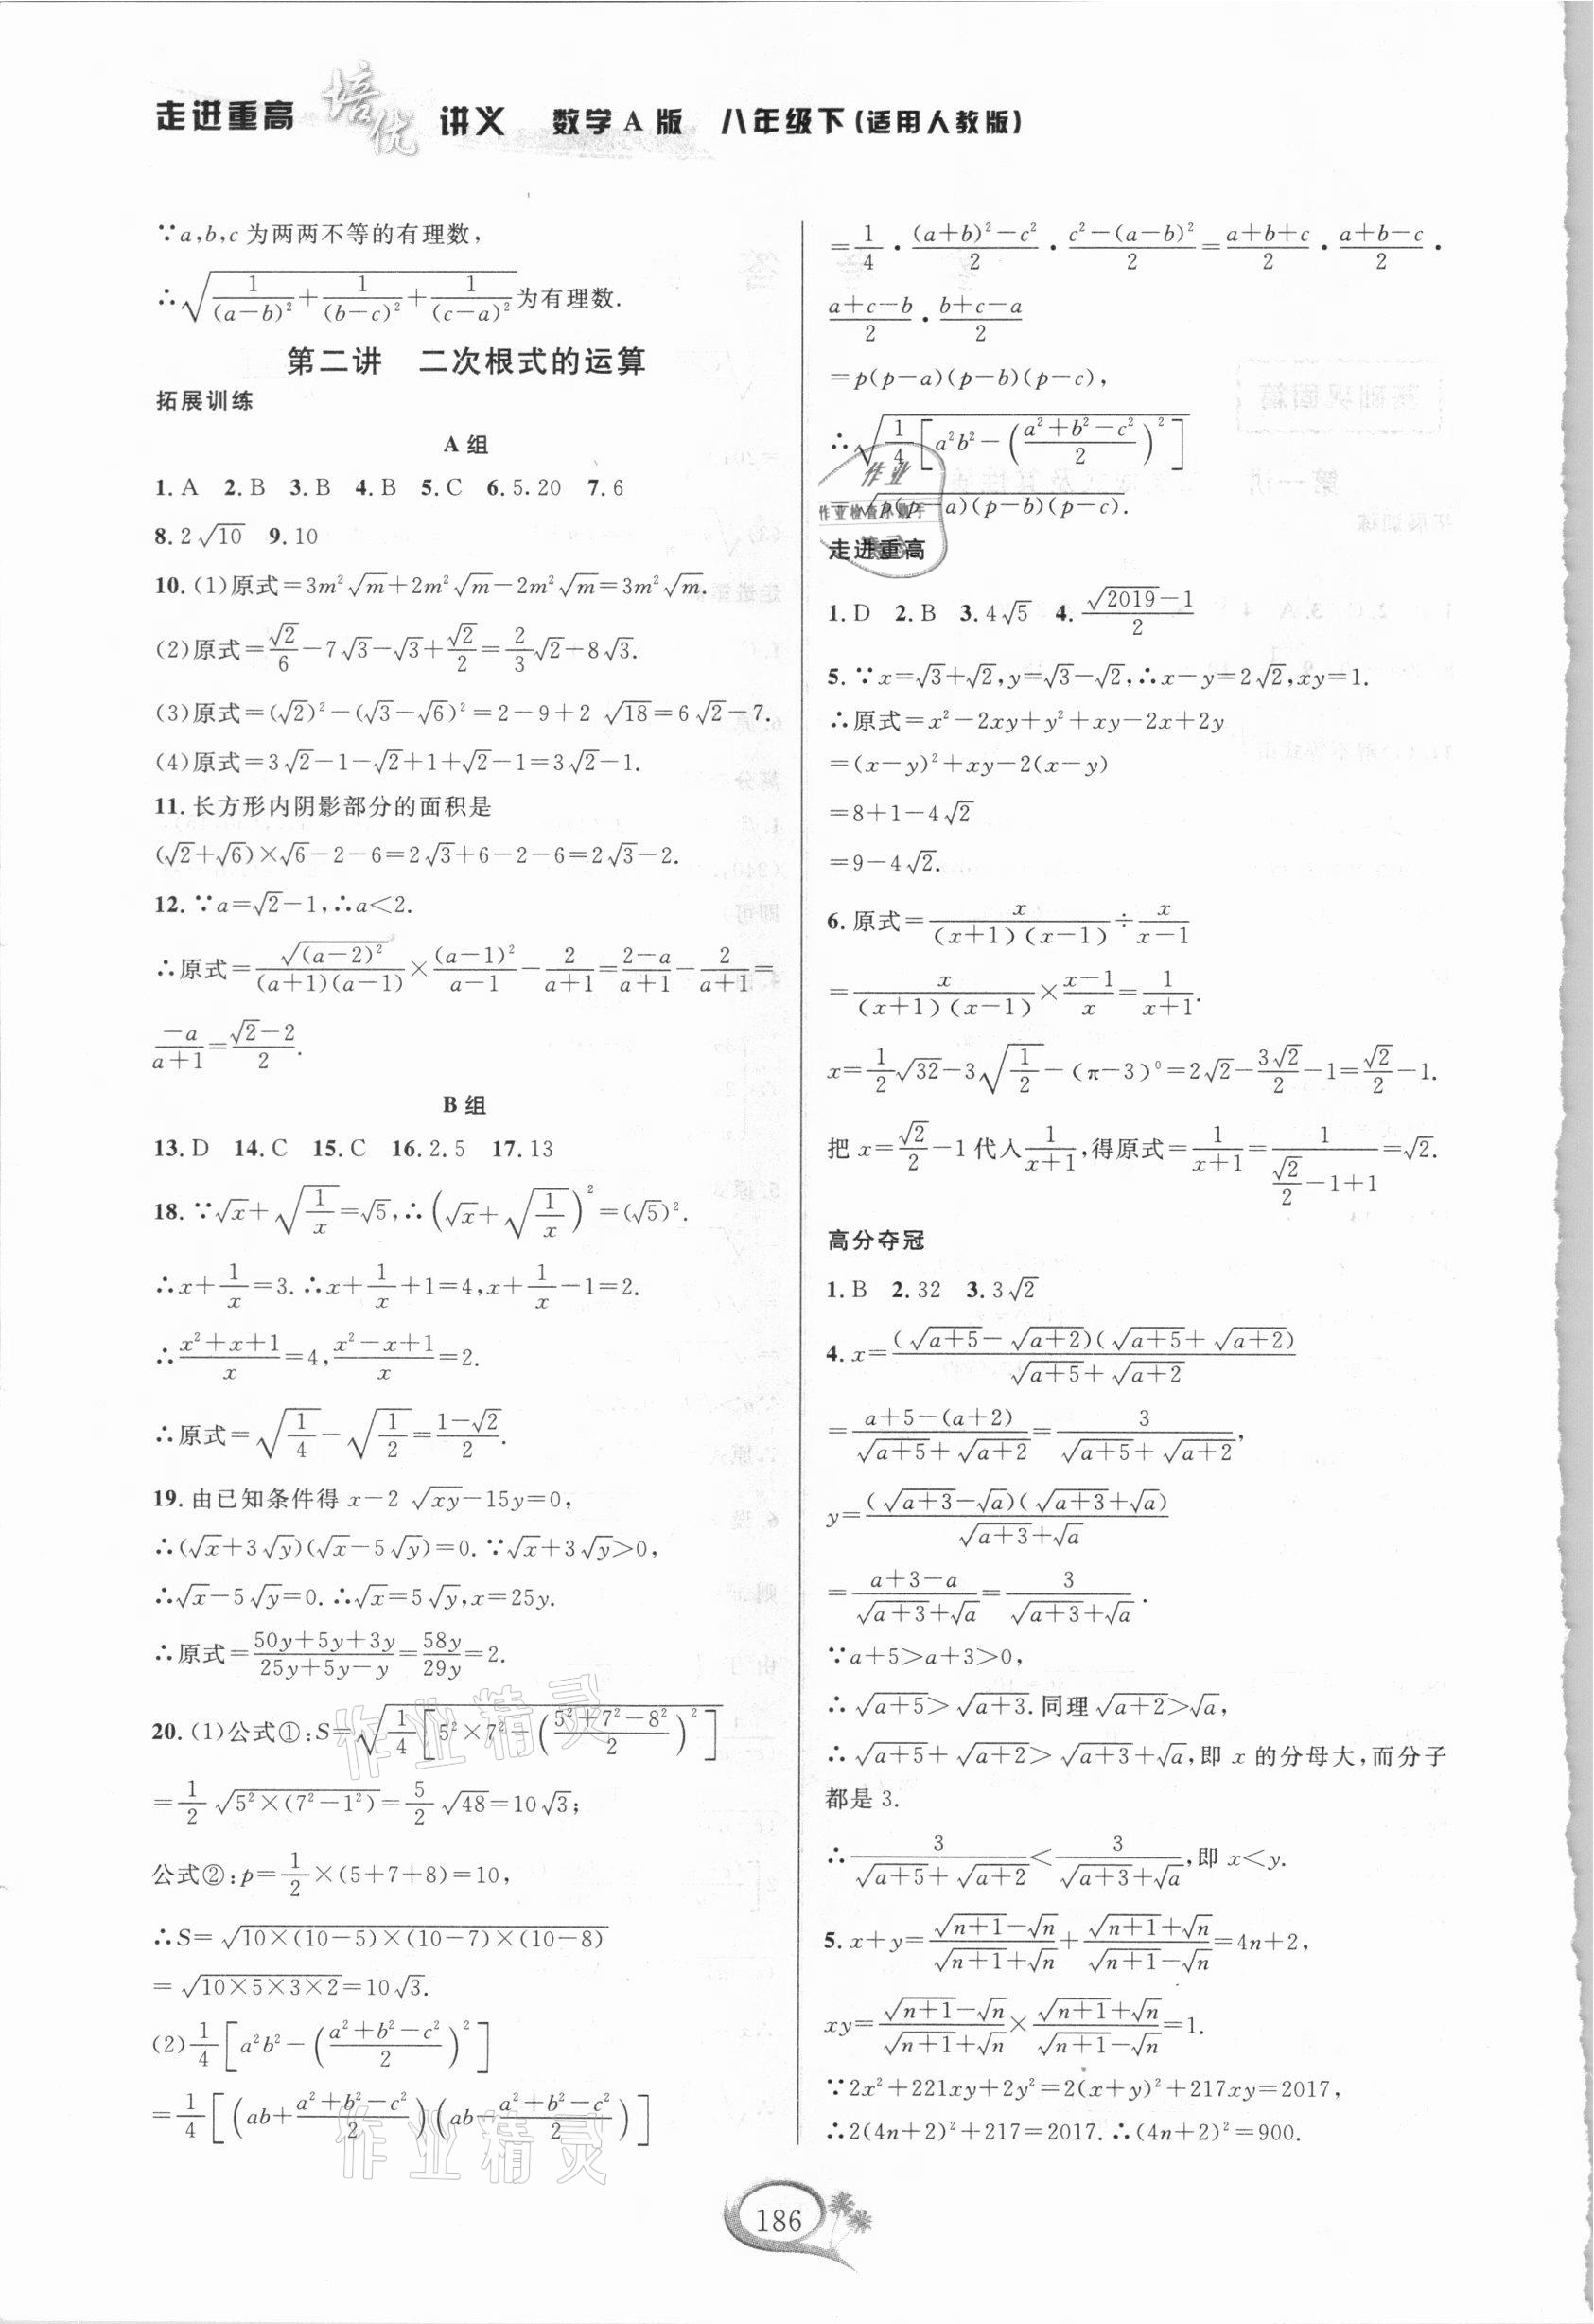 走进重高 培优 讲义 数学A版 八年级下(适用人教版)
∵a,b,c为两两不等的有理数,
∴√(1/(a-b)²+1/(b-c)²+1/(c-a)²)为有理数.
第二讲 二次根式的运算
拓展训练
A组
1. A 2. B 3. B 4. B 5. C 6. 5.20 7. 6
8. 2√10 9. 10
10. (1)原式=3m²√m+2m²√m-2m²√m=3m²√m.
(2)原式=√2/6-7√3-√3+√2/2=2/3√2-8√3.
(3)原式=(√2)²-(√3-√6)²=2-9+2√18=6√2-7.
(4)原式=3√2-1-√2+1+√2-1=3√2-1.
11. 长方形内阴影部分的面积是
(√2+√6)×√6-2-6=2√3+6-2-6=2√3-2.
12. ∵a=√2-1,∴a<2.
∴原式=√((a-2)²)/((a+1)(a-1))×(a-1)²/(a-1)-2/(a+1)=(2-a)/(a+1)-2/(a+1)=
-a/(a+1)=(√2-2)/2.
B组
13. D 14. C 15. C 16. 2.5 17. 13
18. ∵√x+√(1/x)=√5,∴(√x+√(1/x))²=(√5)².
∴x+1/x=3.∴x+1/x+1=4,x+1/x-1=2.
∴(x²+x+1)/x=4,(x²-x+1)/x=2.
∴原式=√(1/4)-√(1/2)=(1-√2)/2.
19. 由已知条件得x-2√(xy)-15y=0,
∴(√x+3√y)(√x-5√y)=0.∵√x+3√y>0,
∴√x-5√y=0.∴√x=5√y,x=25y.
∴原式=(50y+5y+3y)/(25y+5y-y)=58y/29y=2.
20. (1)公式①:S=√(1/4[5²×7²-((5²+7²-8²)/2)²])
=1/2√(5²×(7²-1²))=5/2√48=10√3;
公式②:p=1/2×(5+7+8)=10,
∴S=√(10×(10-5)×(10-7)×(10-8))
=√(10×5×3×2)=10√3.
(2)1/4[a²b²-((a²+b²-c²)/2)²]
=1/4[(ab+(a²+b²-c²)/2)(ab-(a²+b²-c²)/2)]
=1/4·((a+b)²-c²)/2·(c²-(a-b)²)/2=(a+b+c)/2·(a+b-c)/2·
(a+c-b)/2·(b+c-a)/2
=p(p-a)(p-b)(p-c),
∴√(1/4[a²b²-((a²+b²-c²)/2)²])
=√(p(p-a)(p-b)(p-c)).
走进重高
1. D 2. B 3. 4√5 4. (√2019-1)/2
5. ∵x=√3+√2,y=√3-√2,∴x-y=2√2,xy=1.
∴原式=x²-2xy+y²+xy-2x+2y
=(x-y)²+xy-2(x-y)
=8+1-4√2
=9-4√2.
6. 原式=x/((x+1)(x-1))÷x/(x-1)
=x/((x+1)(x-1))×(x-1)/x=1/(x+1).
x=1/2√32-3√(1/2)-(π-3)⁰=2√2-3√2/2-1=√2/2-1.
把x=√2/2-1代入1/(x+1),得原式=1/(x+1)=1/(√2/2-1+1)=√2.
高分夺冠
1. B 2. 32 3. 3√2
4. x=(√(a+5)-√(a+2))(√(a+5)+√(a+2))/(√(a+5)+√(a+2))
=(a+5-(a+2))/(√(a+5)+√(a+2))=3/(√(a+5)+√(a+2)),
y=(√(a+3)-√a)(√(a+3)+√a)/(√(a+3)+√a)
=(a+3-a)/(√(a+3)+√a)=3/(√(a+3)+√a).
∵a+5>a+3>0,
∴√(a+5)>√(a+3).同理√(a+2)>√a,
∴√(a+5)+√(a+2)>√(a+3)+√a,即x的分母大,而分子
都是3.
∴3/(√(a+5)+√(a+2))<3/(√(a+3)+√a),即x<y.
5. x+y=(√(n+1)-√n)/(√(n+1)+√n)+(√(n+1)+√n)/(√(n+1)-√n)=4n+2,
xy=(√(n+1)-√n)/(√(n+1)+√n)×(√(n+1)+√n)/(√(n+1)-√n)=1.
∵2x²+221xy+2y²=2(x+y)²+217xy=2017,
∴2(4n+2)²+217=2017.∴(4n+2)²=900.
186
作业精灵
作业精灵